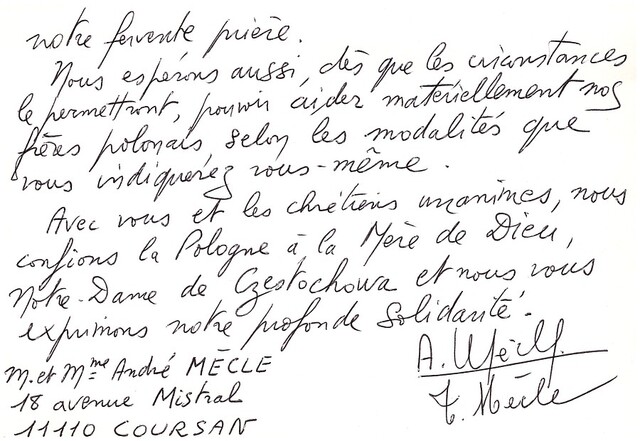 notre fervente prière.
Nous espérons aussi, dès que les circonstances
le permettront, pouvoir aider matériellement nos
frères polonais selon les modalités que
vous indiquerez vous-même.
Avec vous et les chrétiens unanimes, nous
confions la Pologne à la Mère de Dieu,
Notre-Dame de Częstochowa et nous vous
exprimons notre profonde solidarité.
A. Mècle
M. et Mme André MÈCLE
18 avenue Mistral
T. Mècle
11110 COURSAN